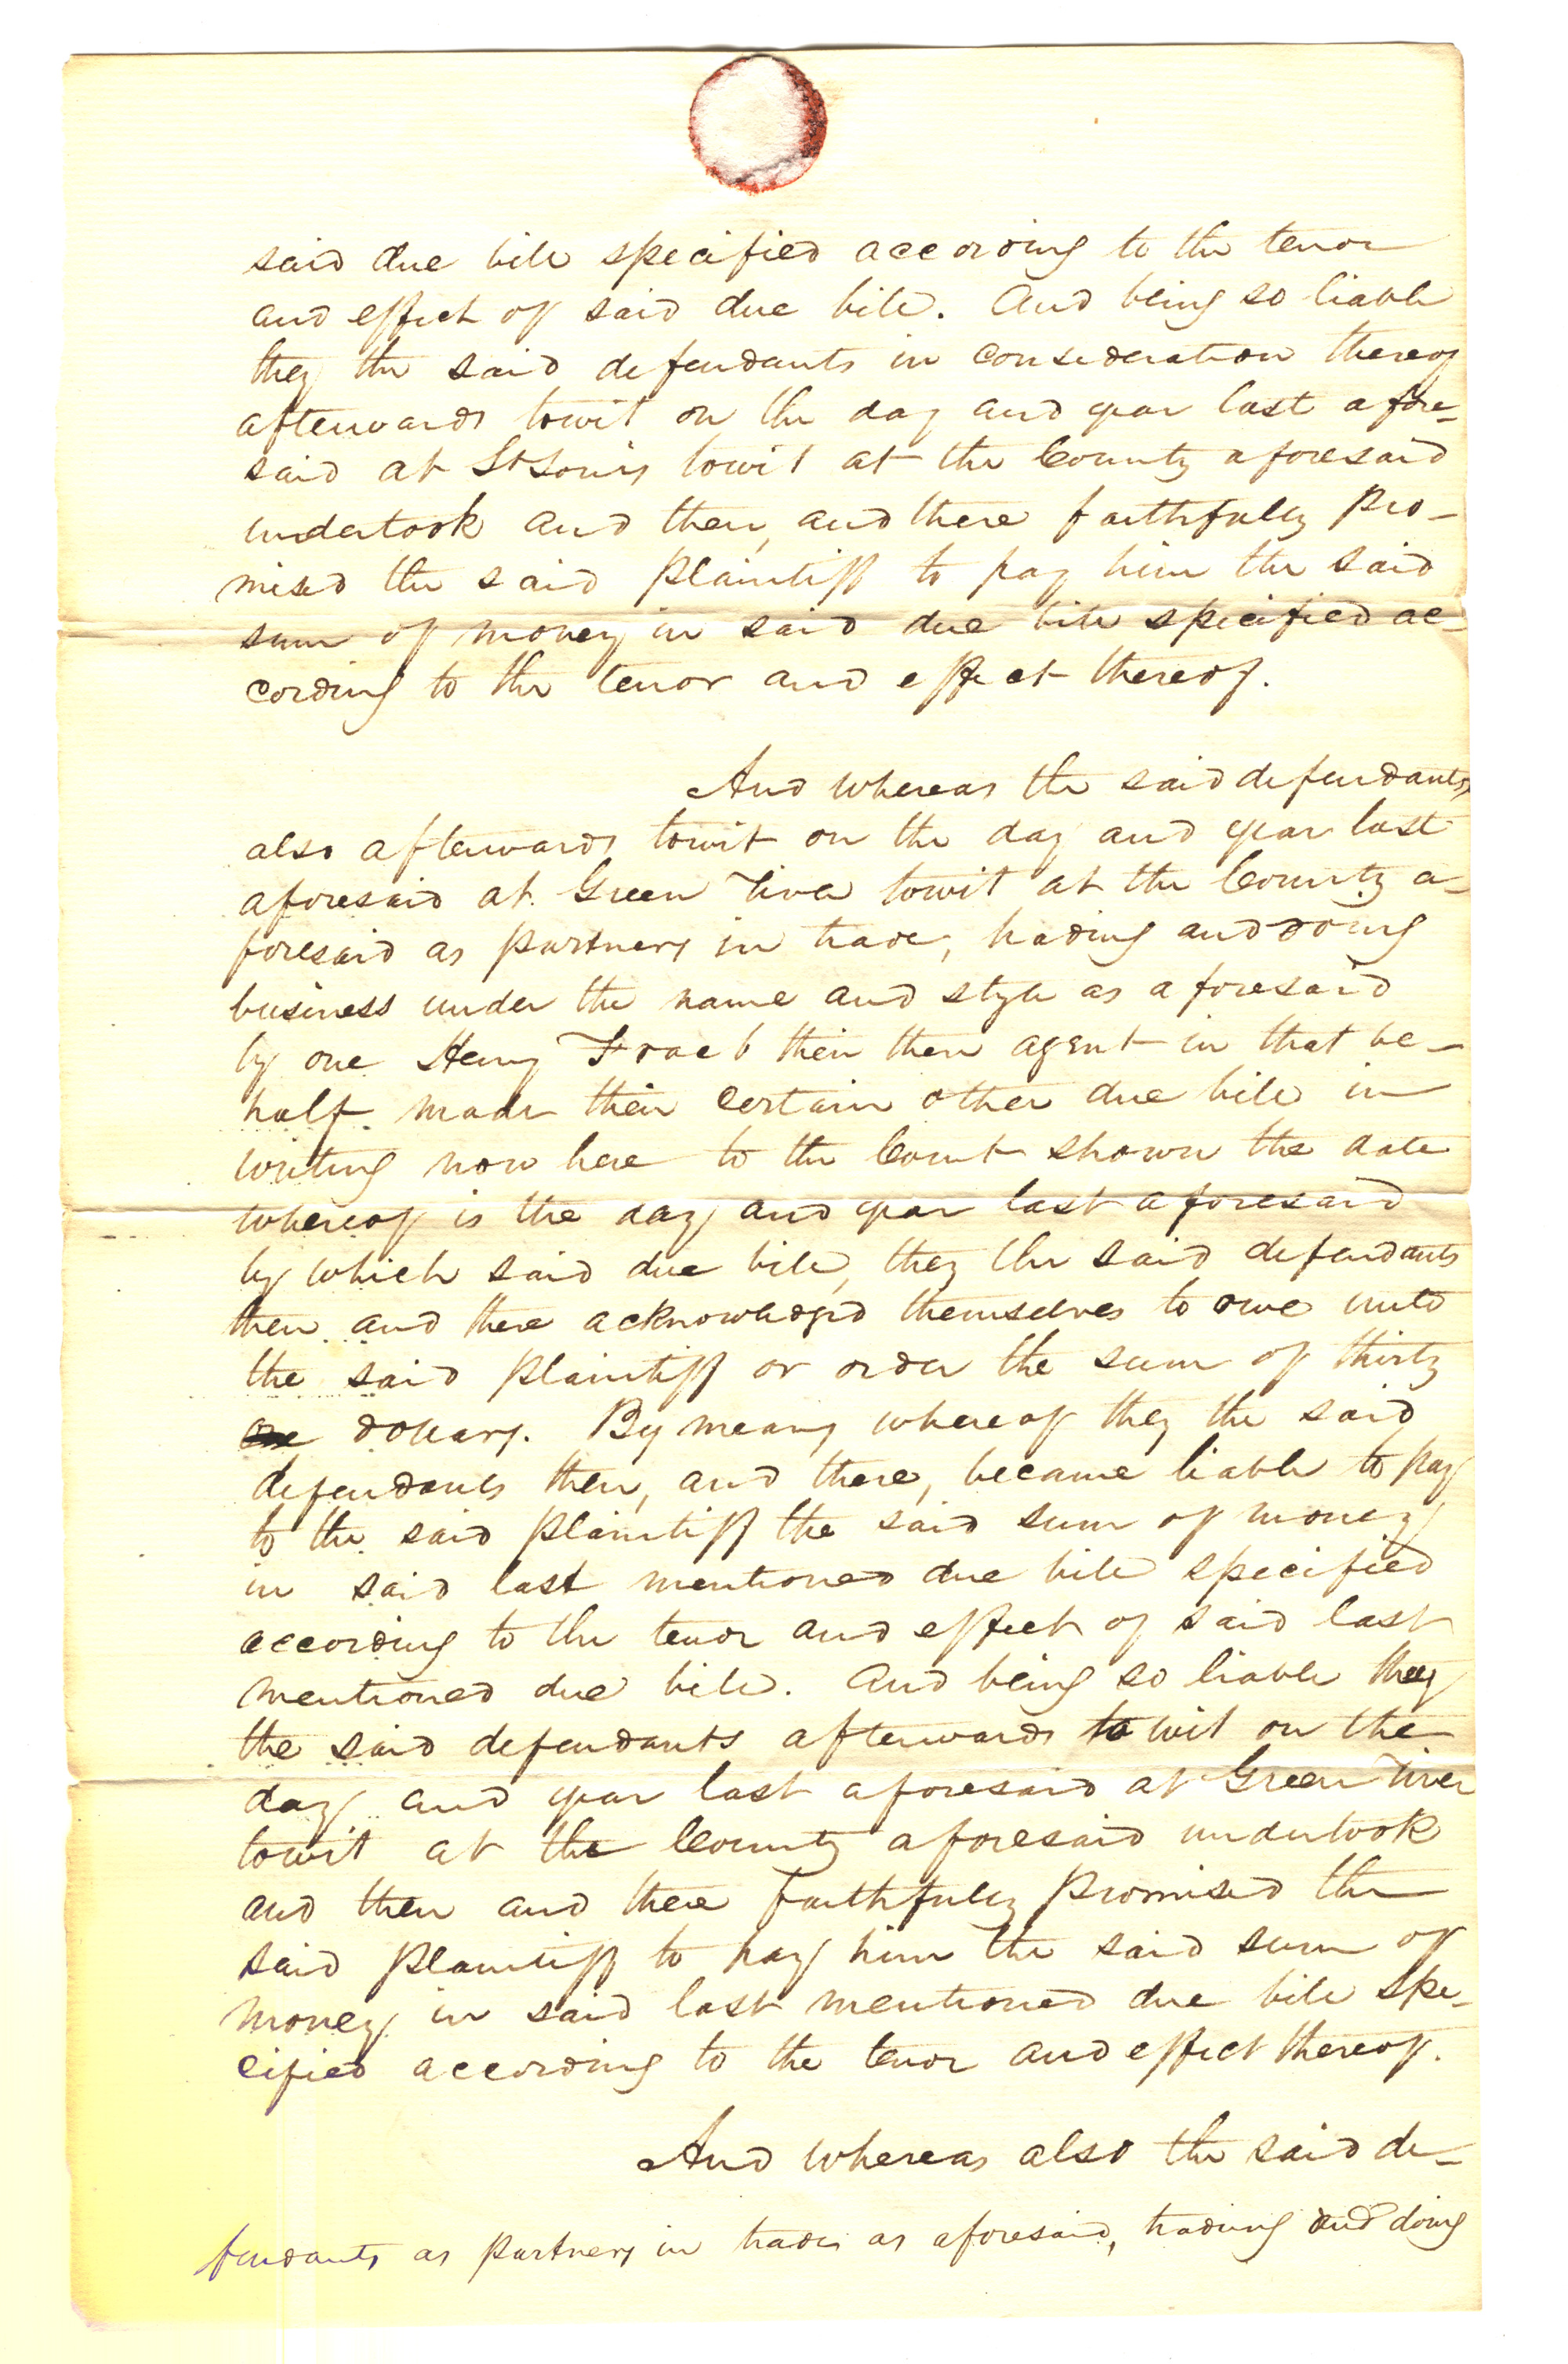 said due bill specified according to the tenor
and effect of said due bill. And being so liable
they the said defendants in consideration thereof
afterwards towit on the day and year last afore-
said at St Louis towit at the County aforesaid
undertook and then, and there faithfully pro-
mised the said plaintiff to pay him the said
sum of money in said due bill specified ac-
cording to the tenor and effect thereof.
And whereas the said defendants,
also afterwards towit on the day and year last
aforesaid at Green River towit at the County a-
foresaid as partners in trade, trading and doing
business under the name and style as aforesaid
by one Henry Fraeb their then agent in that be-
half made their certain other due bill in
writing now here to the Court shown the date
whereof is the day and year last aforesaid
by which said due bill, they the said defendants
then and there acknowledged themselves to owe unto
the said plaintiff or order the sum of thirty
dollars. By means whereof they the said
defendants then, and there, became liable to pay
to the said plaintiff the said sum of money
in said last mentioned due bill specified
according to the tenor and effect of said last
mentioned due bill. And being so liable they
the said defendants afterwards to wit on the
day and year last aforesaid at Green River
towit at the County aforesaid undertook
and then and there faithfully promised the
said plaintiff to pay him the said sum of
money in said last mentioned due bill spe-
cified according to the tenor and effect thereof.
And whereas also the said de-
fendants as partners in trade as aforesaid, trading and doing